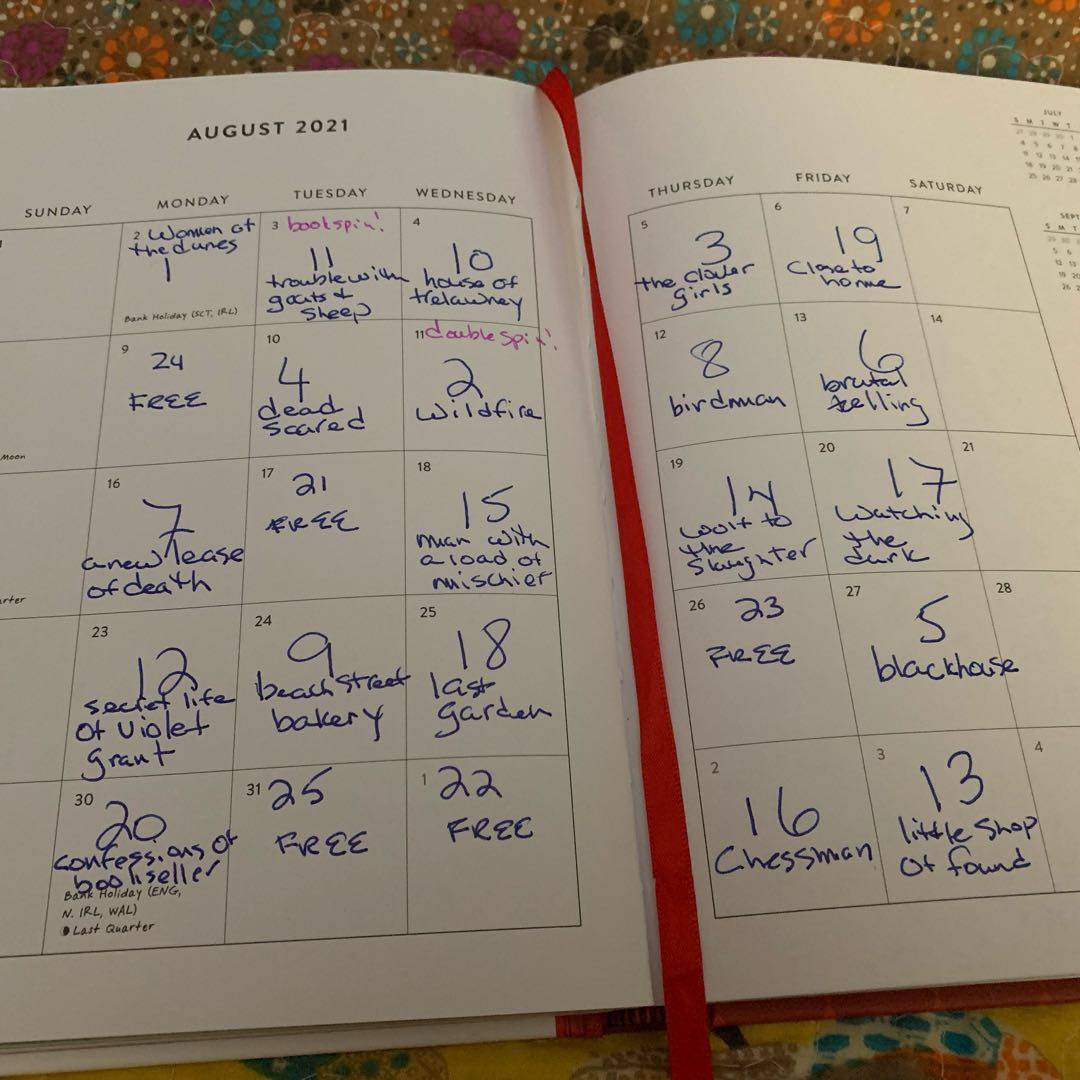 AUGUST 2021
SUNDAY MONDAY TUESDAY WEDNESDAY
2 Women of
the dunes
1
Bank Holiday (SCT, IRL)
3 bookspin!
11
trouble with
goats &
sheep
4
10
house of
trelawney
9
24
FREE
10
4
dead
scared
11 doublespin!
2
Wildfire
Moon
16
7
a new lease
of death
17
21
FREE
18
15
man with
a load of
mischief
23
12
secret life
of violet
grant
24
9
beach street
bakery
25
18
last
garden
30
20
confessions of
bookseller
Bank Holiday (ENG,
N. IRL, WAL)
Last Quarter
31 25
FREE
1 22
FREE
THURSDAY FRIDAY SATURDAY
5
3
the clover
girls
6
19
Close to
home
7
12
8
birdman
13
6
brutal
telling
14
19
14
wolf to
the
slaughter
20
17
Watching
the
dark
21
26
23
FREE
27
5
blackhouse
28
2
16
Chessman
3
13
little shop
of found
4
JULY
S M T W T
4 5 6 7 8
11 12 13 14 15
18 19 20 21 22
25 26 27 28
SEPT
S M T
5 6
12 13
19 20
26 27